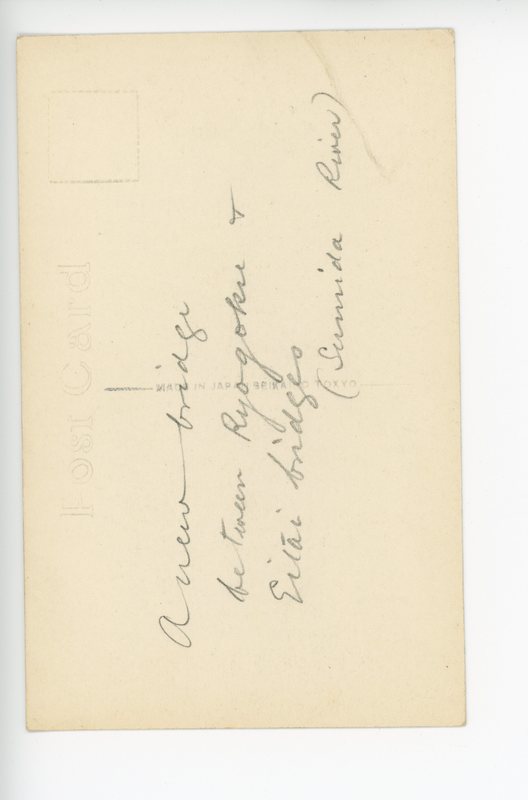 Post Card
A new bridge
between Ryogoku &
Eitai bridges
(Sumida River)
MADE IN JAPAN TOKYO